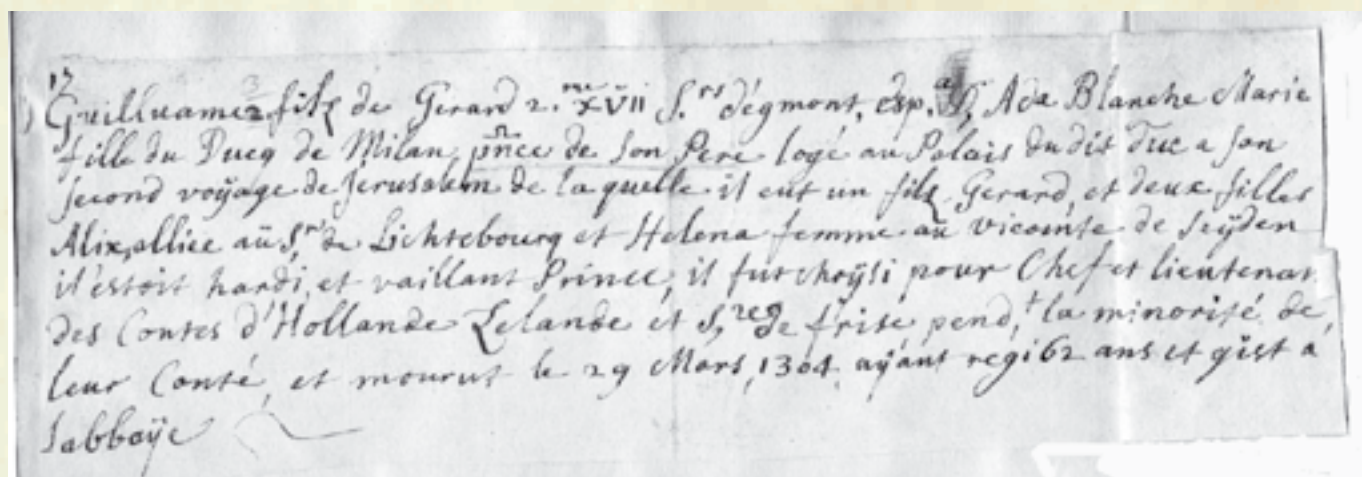 17
Guilluame 2 filz de Gerard 2. me XVII S.rs d'égmont, esp.a Ade Blanche Marie
fille du Ducq de Milan, pnce de son Pere logé au Palais dudit Duc a son
second voÿage de Jerusalem de laquelle il eut un filz Gerard, et deux filles
Alix, alliee aü S.r de Lichtebourg et Helena femme au vicomte de Seÿden
il estoit hardi, et vaillant Prince, il fut choÿsi pour Chef et lieutenat
des Contes d'Hollande Zelande et S,res de frise, pend,t la minorité de,
leur Conté, et mourut le 29 Mars, 1304. aÿant regi 62 ans et gist a
l'abbaÿe